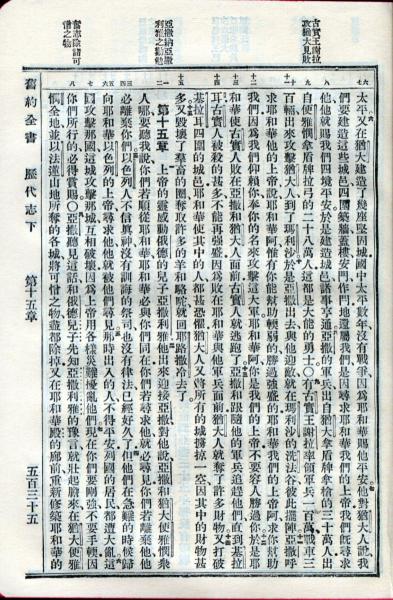 古實王謝拉
攻猶大見敗
亞撒納亞撒
利雅之勸勉
奮志除諸可
憎之物
太平又在猶大建造了幾座堅固城國中太平數年沒有戰事因爲耶和華賜他平安他對猶大人說我
們要建造這些城邑四圍築牆蓋樓安門作閂地還屬我們是因尋求耶和華我們的上帝我們旣尋求
他他就賜我們四境平安於是建造城邑諸事亨通亞撒的軍兵出自猶大拿盾牌拿槍的三十萬人出
自便雅憫拿盾牌拉弓的二十八萬人這都是大能的勇士○有古實王謝拉率領軍兵一百萬戰車三
百輛出來攻擊猶大人到了瑪利沙於是亞撒出去與他迎敵就在瑪利沙的洗法谷彼此擺陣亞撒呼
求耶和華他的上帝說耶和華阿惟有你能幫助軟弱的勝過强盛的耶和華我們的上帝阿求你幫助
我們因爲我們仰賴你奉你的名來攻擊這大軍耶和華阿你是我們的上帝不要容人勝過你於是耶
和華使古實人敗在亞撒和猶大人面前古實人就逃跑了亞撒和跟隨他的軍兵追趕他們直到基拉
耳古實人被殺的甚多不能再强盛因爲敗在耶和華與他軍兵面前猶大人就奪了許多財物又打破
基拉耳四圍的城邑耶和華使其中的人都甚恐懼猶大人又將所有的城擄掠一空因其中的財物甚
多又毀壞了羣畜的圈奪取許多的羊和駱駝就回耶路撒冷去了
第十五章 上帝的靈感動俄德的兒子亞撒利雅他出來迎接亞撒對他說亞撒和猶大便雅憫衆
人哪要聽我說你們若順從耶和華耶和華必與你們同在你們若尋求他就必尋見你們若離棄他他
必離棄你們以色列人不信眞神沒有訓誨的祭司也沒有律法已經好久了但他們在急難的時候歸
向耶和華以色列的上帝尋求他他就被他們尋見那時出入的人不得平安列國的居民都遭大亂這
國攻擊那國這城攻擊那城互相破壞因爲上帝用各樣災難擾亂他們現在你們要剛强不要手軟因
你們所行的必得賞賜亞撒聽見這話和俄德兒子先知亞撒利雅的豫言就壯起膽來在猶大便雅
憫全地並以法蓮山地所奪的各城將可憎之物盡都除掉又在耶和華殿的廊前重新修築耶和華的
舊約全書 歷代志下 第十五章 五百三十五